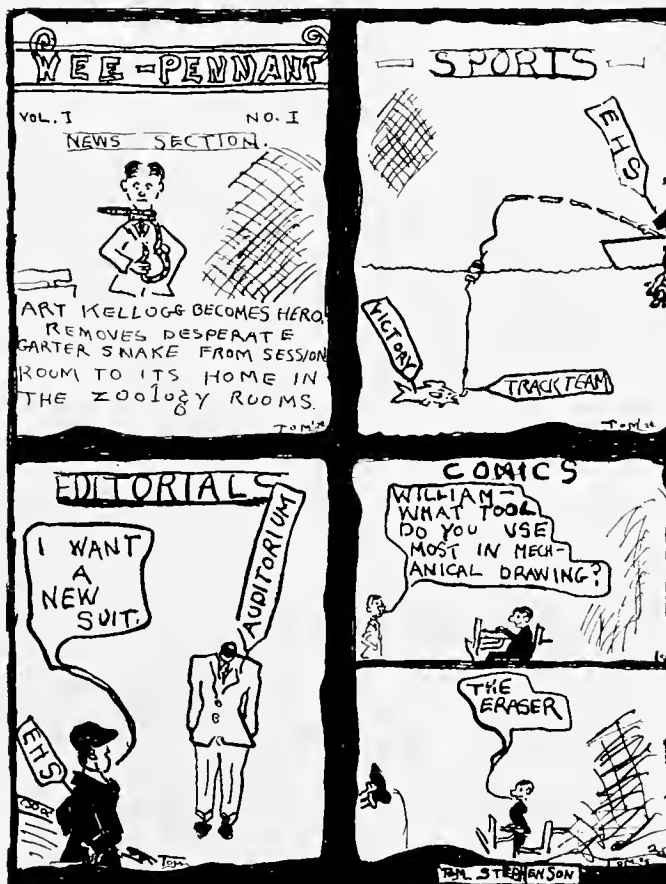 WEE-PENNANT
VOL. I NO. I
NEWS SECTION.
ART KELLOGG BECOMES HERO.
REMOVES DESPERATE
GARTER SNAKE FROM SESSION
ROOM TO ITS HOME IN
THE ZOOlOgy ROOMS.
TOM
SPORTS
EHS
VICTORY
TRACK TEAM
TOM
EDITORIALS
I WANT
A
NEW
SUIT.
AUDITORIUM
EHS
TOM
COMICS
WILLIAM-
WHAT TOOL
DO YOU USE
MOST IN MECH-
ANICAL DRAWING?
THE
ERASER
TOM
TOM STEPHENSON